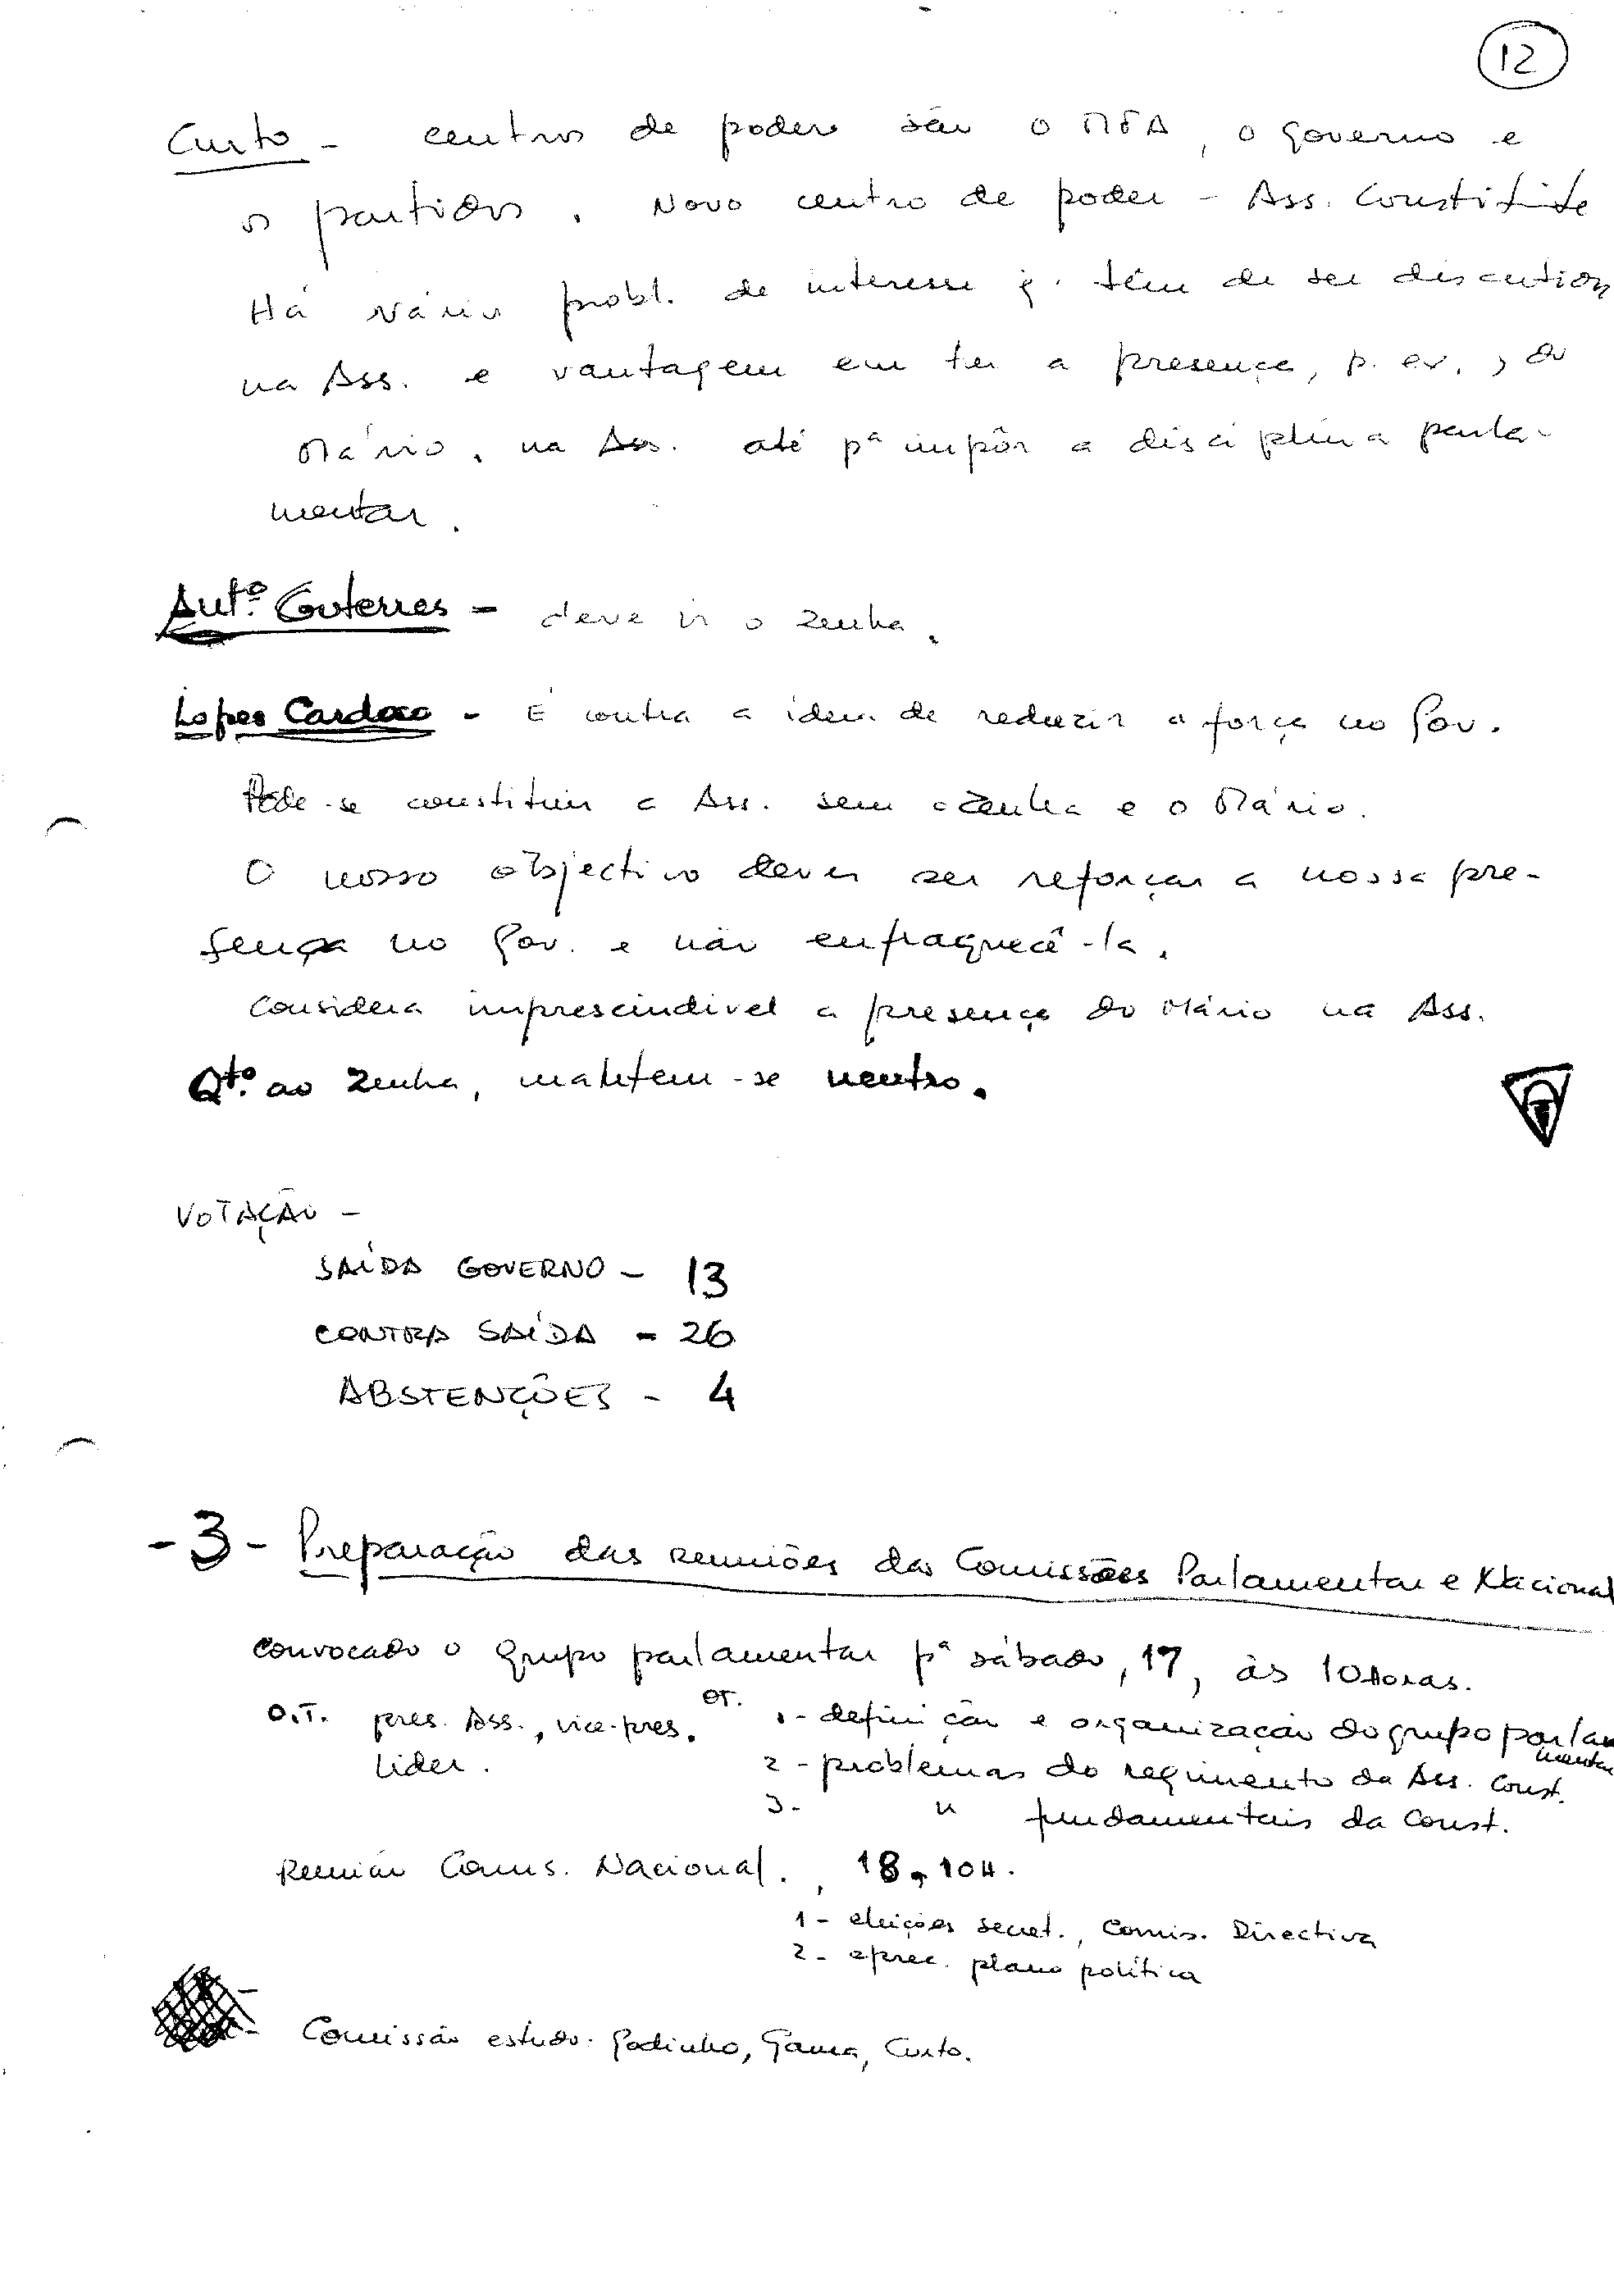 12
Curto - centros de poder são o MFA, o governo e
os partidos. Novo centro de poder - Ass. Constituinte
Há vários probl. de interesse q. têm de ser discutidos
na Ass. e vantagem em ter a presença, p. ex., do
Mário, na Ass. até pª impôr a disciplina parla-
mentar.
Antº. Guterres - deve ir o Zenha.
Lopes Cardoso - É contra a ideia de reduzir a força no Gov.
Pode-se constituir a Ass. sem o Zenha e o Mário.
O nosso objectivo deve ser reforçar a nossa pre-
sença no Gov. e não enfraquecê-la.
Considera imprescindível a presença do Mário na Ass.
Qtº. ao Zenha, mantém-se neutro.
VOTAÇÃO -
SAÍDA GOVERNO - 13
CONTRA SAÍDA - 26
ABSTENÇÕES - 4
-3- Preparação das reuniões das Comissões Parlamentar e Nacional
Convocado o grupo parlamentar pª sábado, 17, às 10 horas.
O.T. pres. Ass., vice-pres. OT. 1- definição e organização do grupo parlamentar
Lider. 2 - problemas do regimento da Ass. Const.
3- " fundamentais da Const.
Reunião Comis. Nacional., 18, 10H.
1 - eleições secret., Comis. Directiva
2 - aprec. plano política
- Comissão estudo: Godinho, Gama, Curto.